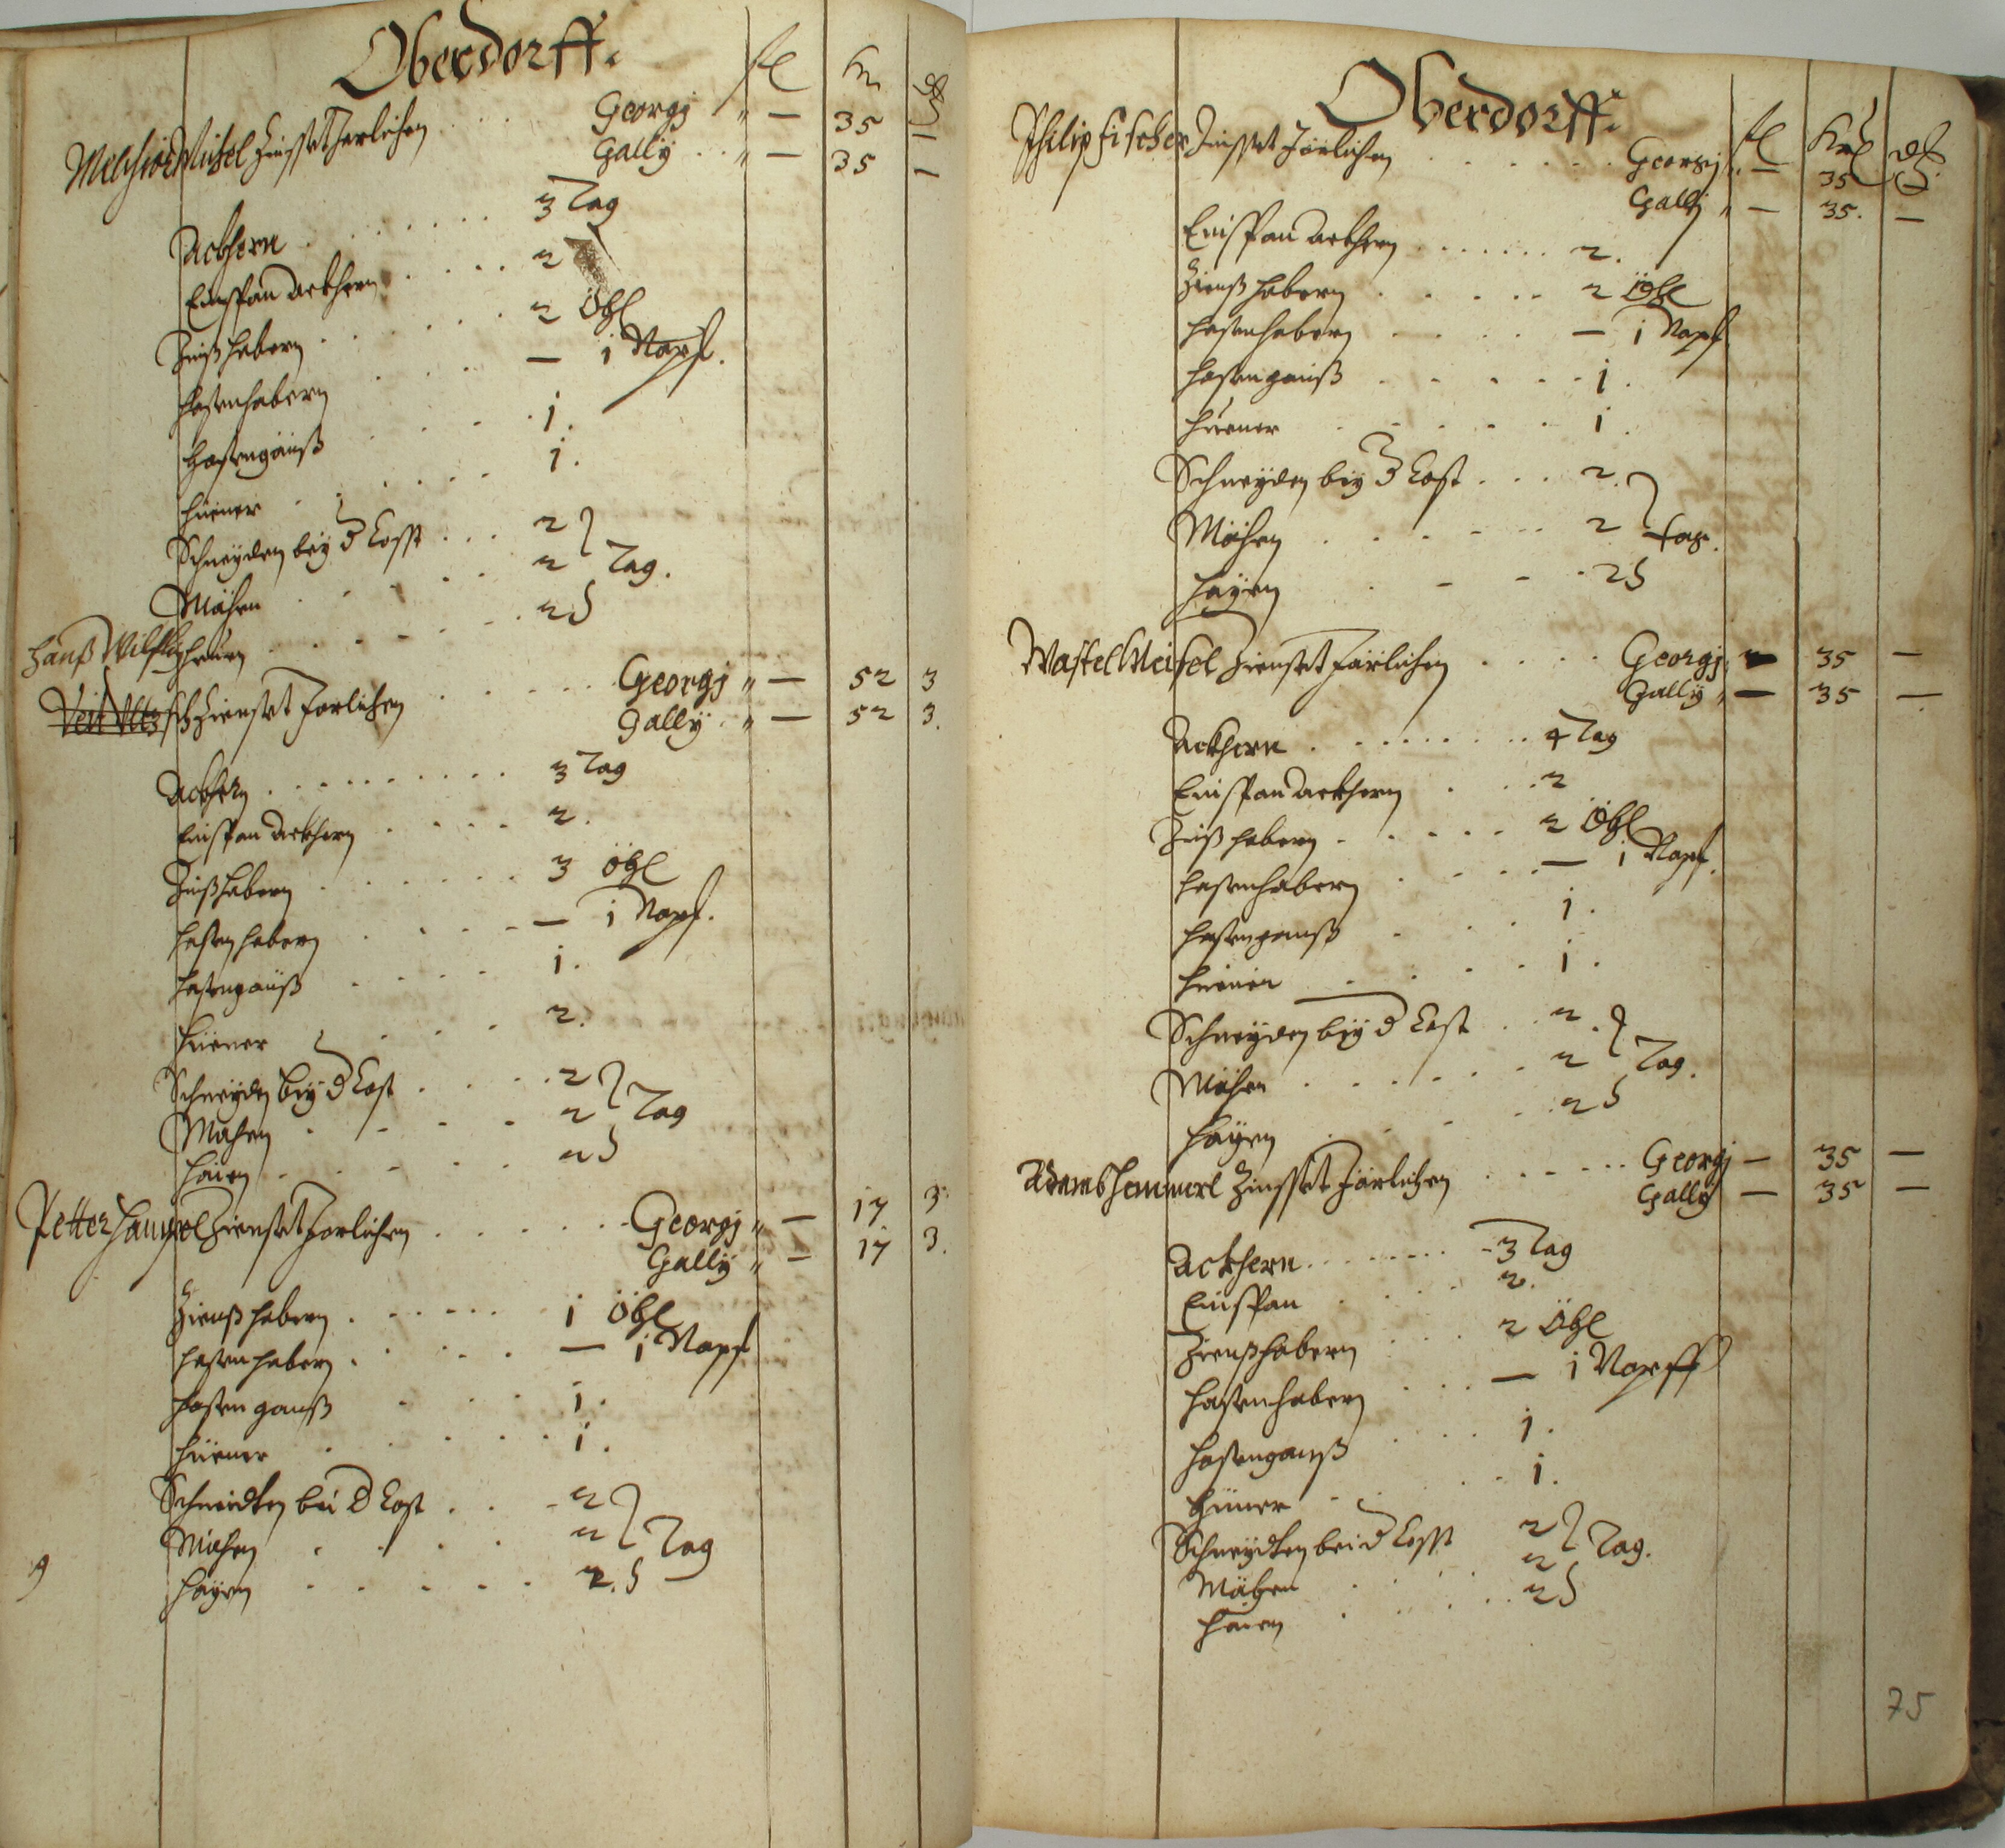 Oberdorff.
fl kr ₰
Melchior Meißel Zinsset Jerlichen . . . Georgj " — 35 1
Gallÿ . . " — 35 1
Ackhern . . . . . . . 3 Tag
Einspan Ackhern . . . . 2
Zinß habern . . . . . . 2 Öhl
Hasenhabern . . . — i Napf.
Hasengänß . . . . i.
Hüener . . . . . i.
Schneÿden beÿ d Cosst . . . 2
Mähen . . . . . 2 Tag.
Heuen . . . . . . 2
Hanß
Veit Zienset Jorlichen . . . . . . Georgj " — 52 3
Gallÿ . " — 52 3.
Ackhern . . . . . . . . . 3 Tag
Einspan Ackhern . . . . 2.
Zinßhabern . . . . . . 3 Öhl
Hasenhabern . . . . — i Napf.
Hasengänß . . . . i.
Hüener . . . . 2.
Schneÿden beÿ d Cost . . . . 2
Mahen . . . . 2 Tag
Haien . . . . . 2
Petter Hampel Zienset Jorlichen . . . . . . Georgj " — 17 3.
Gallÿ " — 17 3.
Zienß habern . . . . . . i Öhl
Hasenhabern . . . . . — i Napf
Hasengänß . . . . i.
Hüener . . . . . i.
Schneidten bei d Cost . . . 2
Mähen . . . . 2 Tag
Haÿen . . . . . 2.
9
Oberdorff.
fl Krl ₰
Philip Fischer Zinsset Järlichen . . . . . . . Georgj " — 35 —
Gallÿ " — 35. —
Einspan Ackhern . . . . . . 2.
Zienß habern . . . . . 2 Öhl
Hasenhabern . . . . — i Napf
Hasengänß . . . . . i.
Hüener . . . . . i.
Schneÿden beÿ d Cost . . . 2.
Mähen . . . . . . 2 Tag.
Haÿen . . . . 2
Wastel Meisel Zienset Järlichen . . . . Georgj " — 35 —
Gallÿ " — 35 —
Ackhern . . . . . . . . 4 Tag
Einspan Ackhern . . . 2
Zinß habern . . . . . 2 Öhl
Hasenhabern . . . . — i Napf.
Hasengänß . . . . i.
Hüener . . . . i.
Schneÿden beÿ d Cost . . 2.
Mähen . . . . . . 2 Tag.
Haÿen . . . . 2
Adam Hemmerl Zinsset Järlichen . . . . . . Georgj — 35 —
Gallÿ — 35 —
Ackhern . . . . . . . . 3 Tag
Einspan . . . . 2.
Zienßhabern . . . . 2 Öhl
Hasenhabern . . . — i Napff
Hasengänß . . . . i.
Hüner . . . . i.
Schneÿdten bei d Cosst 2
Mähen . . . . 2 Tag.
Haien . . . . . 2
75